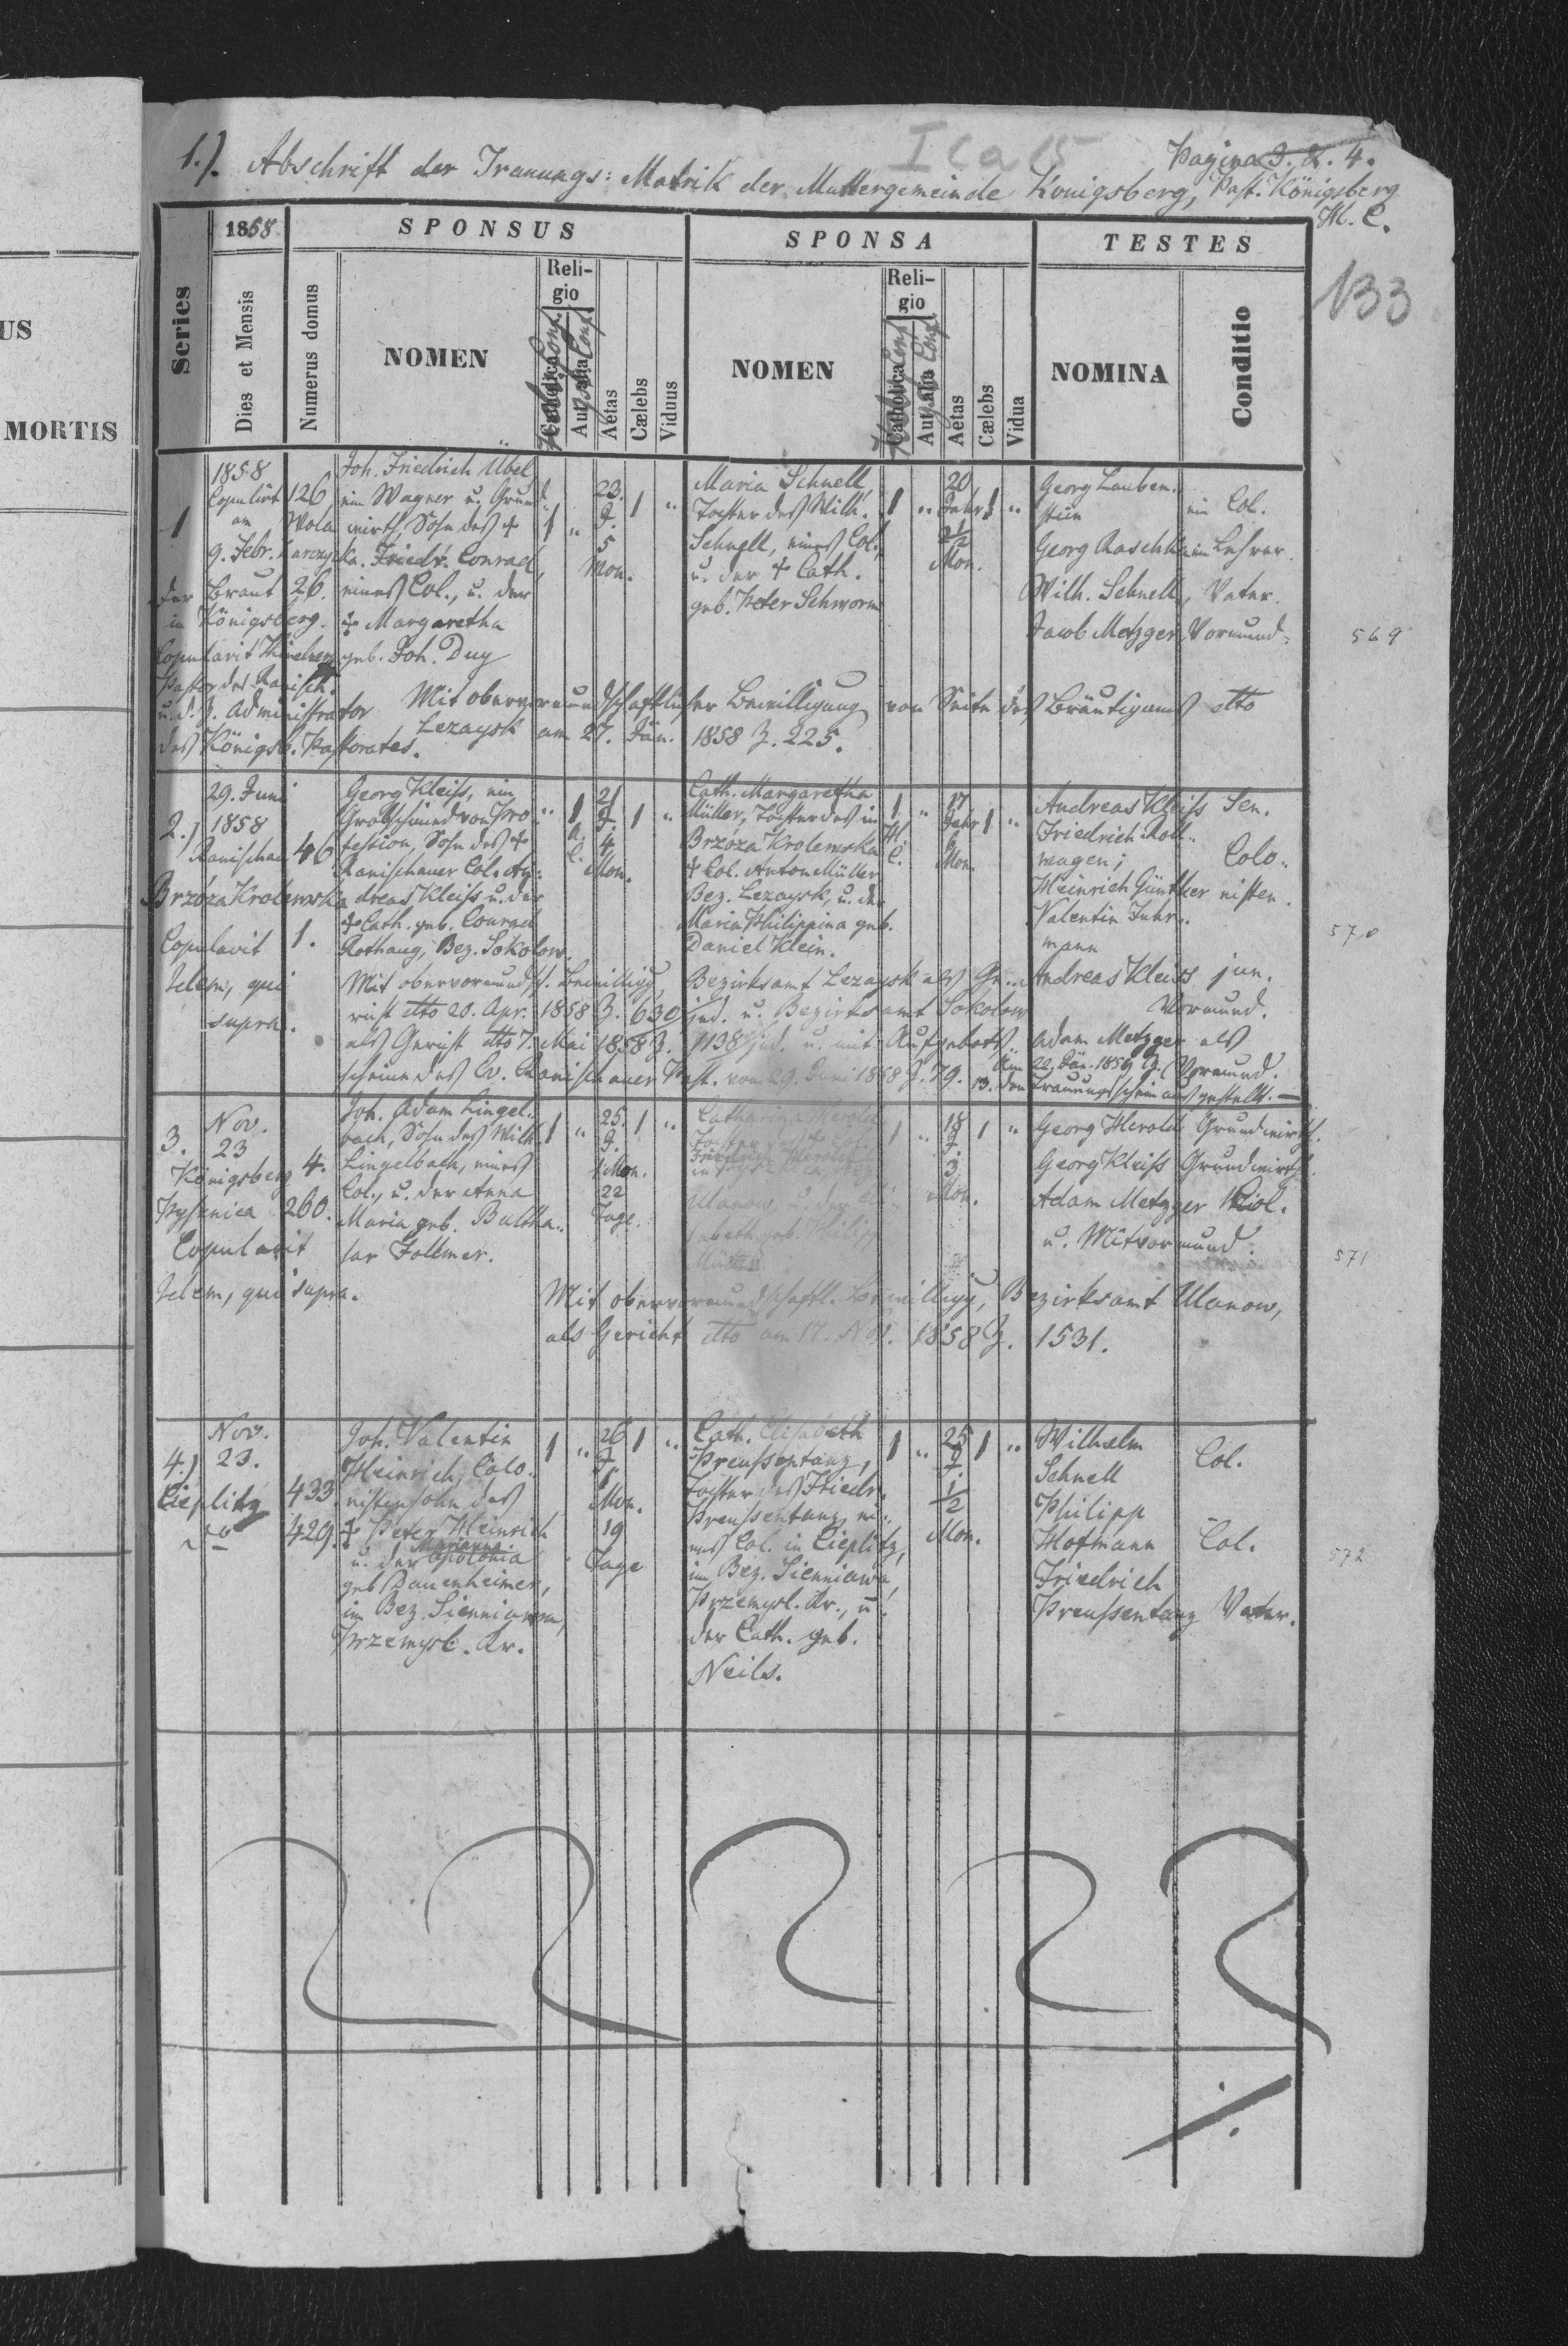 US
MORTIS
I C a 15
Pagina 3. & 4.
1.) Abschrift der Trauungs: Matrik der Muttergemeinde Königsberg, Past. Königsberg
H. C.
133
1858
SPONSUS
SPONSA
TESTES
Series
Dies et Mensis
Numerus domus
NOMEN
Reli-
gio
Catholica
Aut alia
Aetas
Cælebs
Viduus
NOMEN
Reli-
gio
Catholica
Aut alia
Aetas
Cælebs
Vidua
NOMINA
Conditio
1
1858
Copulirt
am
9. Febr.
126
Wola
Zarczycka.
der Braut 26.
in Königsberg.
Copulavit
Pastor des Ranisch.
u. d. Z. Administrator
des Königsb. Pastorates.
Joh. Friedrich Übel
ein Wagner u. Grund
wirth, Sohn des +
Friedr. Conrad,
eines Col., u. der
+ Margaretha
geb. Joh. Duy
1 "
23.
J.
5
Mon.
1 "
Maria Schnell,
Tochter des Wilh.
Schnell, eines Col.,
u. der + Cath.
geb. Peter Schworm
1 "
20
Jahr
2 1/2
Mon.
1 "
Georg Lauben-
stein
ein Col.
Georg Raschke ein Lehrer.
Wilh. Schnell, Vater.
Jacob Metzger, Vormund
569
Mit obervormundschaftlicher Bewilligung von Seite des Bräutigams dtto
Lezaysk am 27. Jän. 1858 Z. 225.
2.)
29. Juni
1858
Ranischau 40
Brzóza Krolewska
Copulavit 1.
Idem, qui
supra.
Georg Kleiss, ein
Grobschmied von Pro-
fession, Sohn des +
Ranischauer Col. An-
dreas Kleiss u. der
+ Cath. geb. Conrad
Rothaug, Bez. Sokolow.
" 1
21
J.
4
Mon.
1 "
Cath. Margaretha
Müller, Tochter des in
Brzóza Krolewska
+ Col. Anton Müller
Bez. Lezaysk, u. der
Maria Philippina geb.
Daniel Klein.
1 "
H.
C.
17
Jahr
6
Mon.
1 "
Andreas Kleiss Sen.
Friedrich Roll-
wagen;
Heinrich Günther
Valentin Fuhr-
mann
Colo-
nisten.
Andreas Kleiss jun.
Vormund.
Adam Metzger als
Vormund.
570
Mit obervormundsch. Bewilligg, Bezirksamt Lezaysk als Ge-
richt dtto 20. Apr. 1858 Z. 630/jud. u. Bezirksamt Sokolow
als Gericht dtto 7. Mai 1858 Z. 1138/jud. u. mit Aufgebots-
scheine des Ev. Ranischauer Past. vom 29. Juni 1858 Z. 79.
Am 22. Jän. 1859 Z.
13. den Trauungsschein ausgestellt. —
3.
Nov.
23
Königsberg 4.
Pysznica 260.
Copulavit
Idem, qui supra.
Joh. Adam Lingel-
bach, Sohn des Wilh.
Lingelbach, eines
Col., u. der Anna
Maria geb. Baltha-
sar Follmer.
1 "
25.
J.
1 Mon.
22
Tage.
1 "
Catharina Herold
Tochter des + Col.
Friedrich Herold
in Pysznica, Bez.
Ulanow, u. der Eli-
sabeth geb. Philipp
1 "
18
J.
3
Mon.
1 "
Georg Herold Grundwirth.
Georg Kleiss Grundwirth.
Adam Metzger Col.
u. Mitvormund.
571
Mit obervormundschaftl. Bewilligg, Bezirksamt Ulanow,
als Gericht dtto am 17. Nov. 1858 Z. 1531.
4.)
Nov.
23.
Cieplitz 433
429.
Joh. Valentin
Heinrich, Colo-
nistensohn des
+ Peter Heinrich
Marianna
u. der Apolonia
geb. Bauenheimer,
im Bez. Sienniawa,
Przemysl. Kr.
1 "
26
J.
Mon.
19
Tage
1 "
Cath. Elisabeth
Preussentanz,
Tochter des Friedr.
Preussentanz ei-
nes Col. in Cieplitz,
im Bez. Sienniawa,
Przemysl. Kr., u.
der Cath. geb.
Neils.
1 "
25
J.
1/2
Mon.
1 "
Wilhelm
Schnell
Col.
Philipp
Hofmann
Col.
Friedrich
Preussentanz Vater.
572